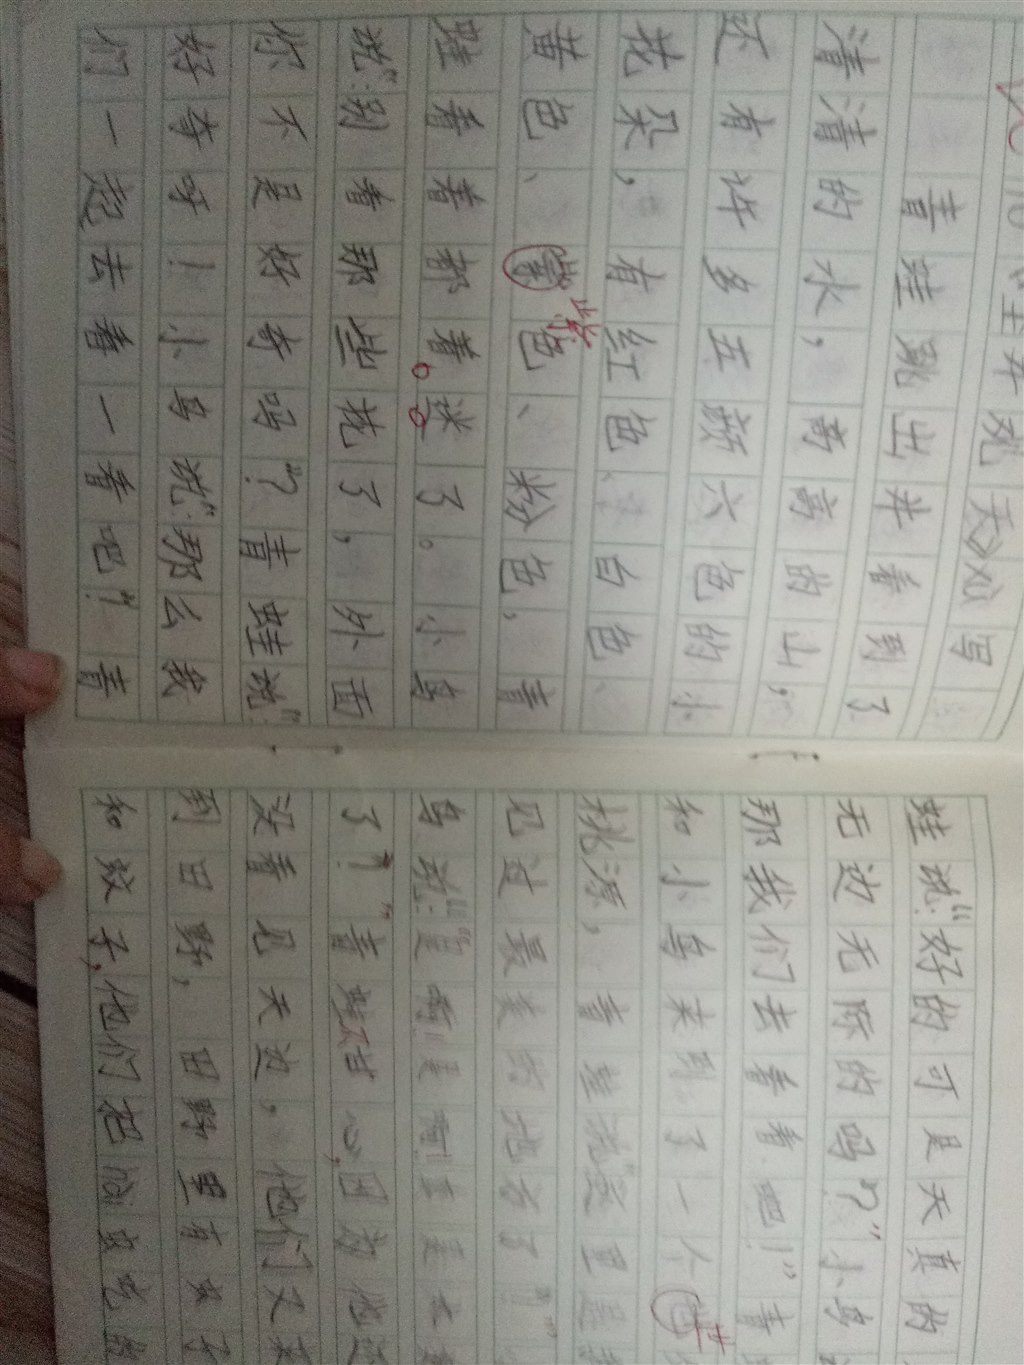 青蛙跳出井看到了
清清的水，高高的山，
还有许多五颜六色的小
花朵，有红色、白色、
黄色、紫色、粉色，青
蛙看着都着迷了。小鸟
说：“别看那些花了，外面
你不是好奇吗？”青蛙说：“
好奇呀！小鸟说：“那么我
们一起去看一看吧！”青
蛙说：“好的可是天真的
无边无际的吗？”小鸟
那我们去看看吧！”青
和小鸟来到了一个世
桃源，青蛙说“这里是
见过最美的地方了！”
鸟说：“是啊！是啊！
了！”青蛙不甘心，因为他
没看见天边。他们又来
到田野，田野里有虫子
和蚊子，他们把 虫吃